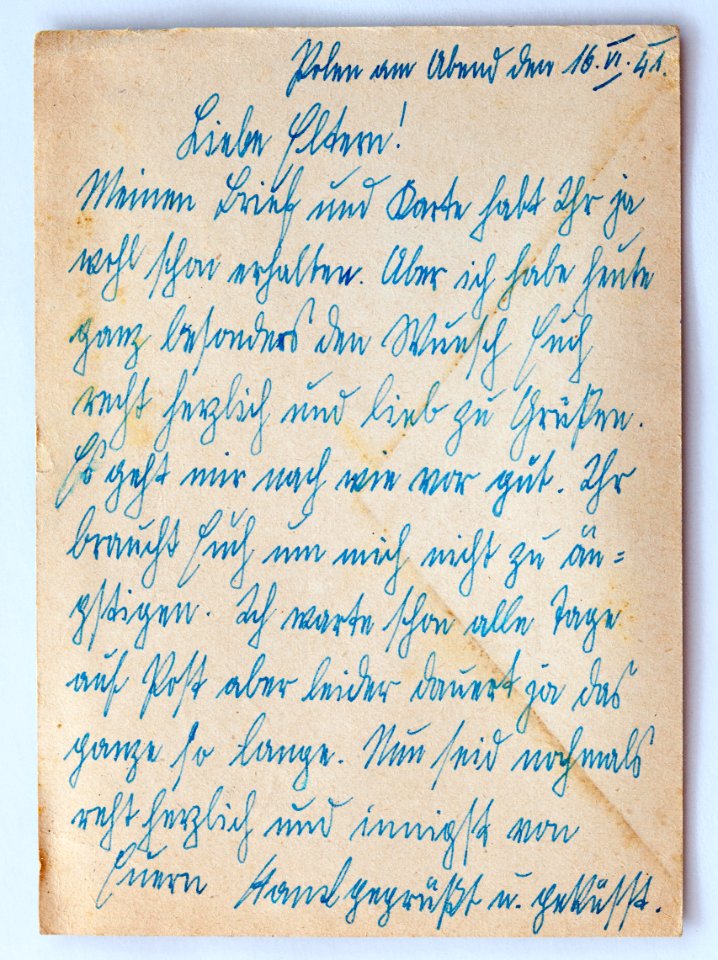 Polen am Abend den 16.VI.41.
Liebe Eltern!
Meinen Brief und Karte habt Ihr ja
wohl schon erhalten. Aber ich habe heute
ganz besonders den Wunsch Euch
recht herzlich und lieb zu Grüßen.
Es geht mir nach wie vor gut. Ihr
braucht Euch um mich nicht zu än=
gstigen. Ich warte schon alle Tage
auf Post aber leider dauert ja das
ganze so lange. Nun seid nochmals
recht herzlich und innigst von
Euern gegrüßt u. geküsst.